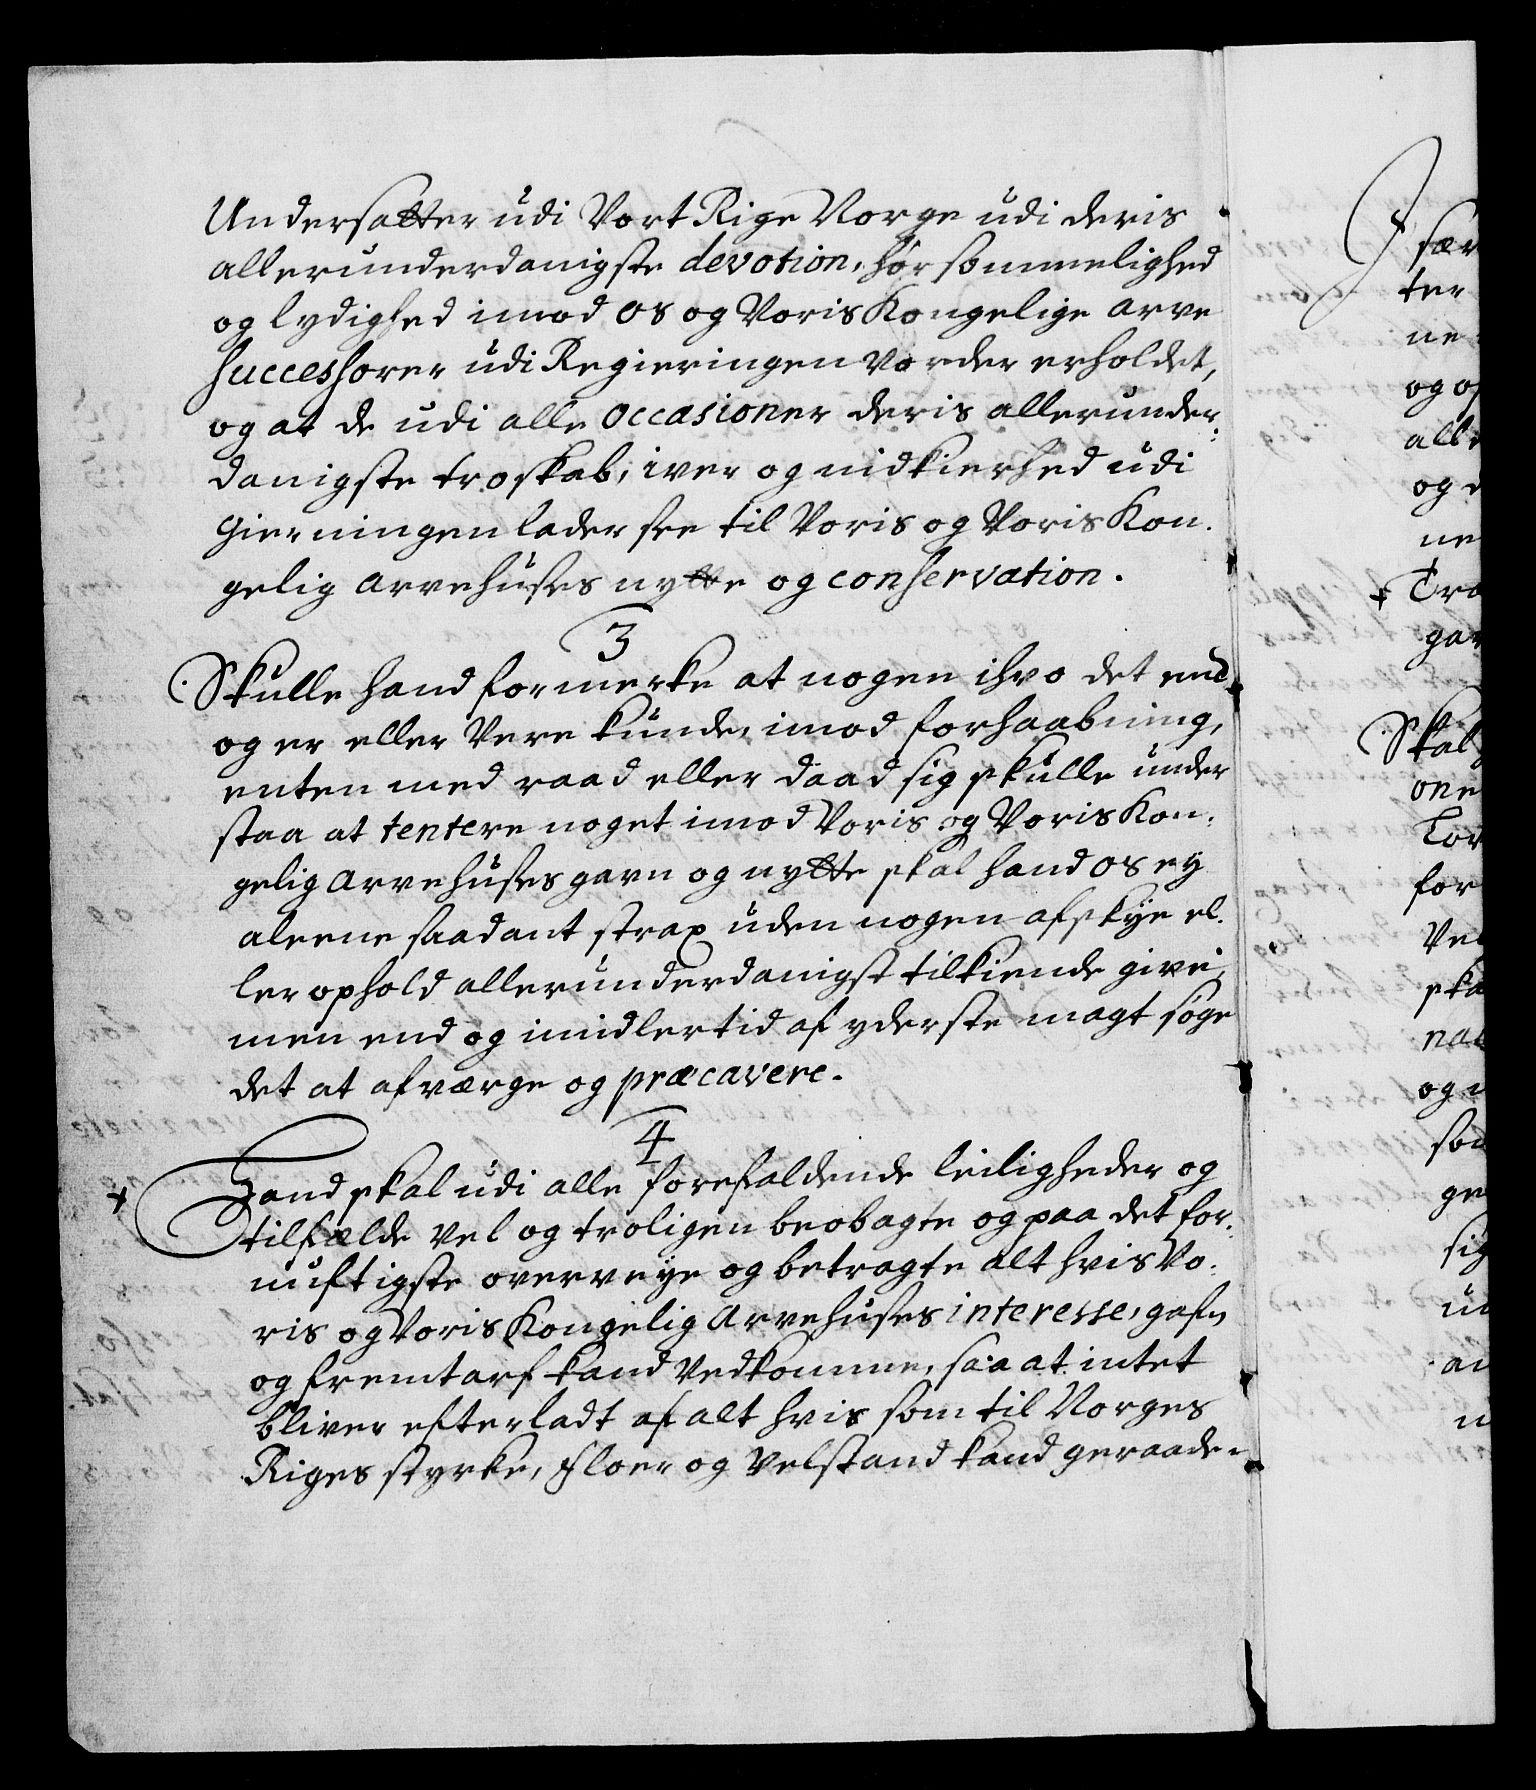 Undersatter udi Vort Rige Norge udi deris
allerunderdanigste devotion, hørsommelighed
og lydighed imod os og Voris Kongelige arve
successorer udi Regieringen vorder erholdet,
og at de udi alle occasioner deris allerunder-
danigste troskab, iver og nidkierhed udi
gierningen lader see til Voris og Voris Kon-
gelig arvehuses nytte og conservation.
3
Skulle hand formerke at nogen ihvo det end
og er eller vere kunde, imod forhaabning,
enten med raad eller daad sig skulle under
staa at tentere noget imod Voris og Voris Kon-
gelig arvehuses gavn og nytte skal hand os ey
aleene saadant strax uden nogen afskye el-
ler ophold allerunderdanigst tilkiende give,
men end og imidlertid af yderste magt søge
det at afværge og præcavere.
4
Hand skal udi alle forefaldende leiligheder og
tilfælde vel og troligen beobagte og paa det for-
nuftigste overveye og betragte alt hvis Vo-
ris og Voris Kongelig Arvehuses interesse, gafn
og fremtarf kand vedkomme, saa at intet
bliver efterladt af alt hvis som til Norges
Riges styrke, floer og velstand kand geraade.
I
sær
ter
ne
og
alle
og
ne
Tro
gav
Skal
one
Lov
for
Vel
ska
nat
og
som
ge
sig